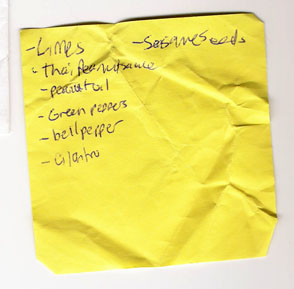 - Limes
- Sesame Seeds
- thai peanut sauce
- peanut oil
- Green peppers
- bell pepper
- cilantro